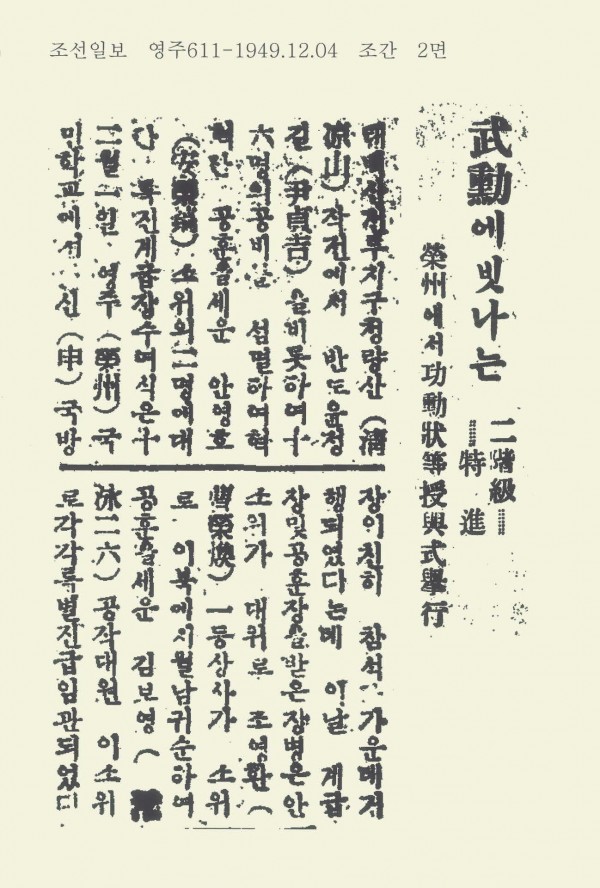 조선일보 영주611-1949.12.04 조간 2면
武勳에빗나는
二階級
特進
榮州에서 功勳狀等授與式擧行
태백산전투지구청량산(淸
凉山) 작전에서 반도윤정
길(尹貞吉)을비롯하여十
六명의공비를 섬멸하여혁
혁한 공훈을세운 안영호
소위외二명에대
한 특진계급장수여식은十
二월一일 영주(榮州)국
민학교에서 신(申)국방
장이친히 참석 가운데거
행되였다는데 이날 계급
장및공훈장을받은장병은안
소위가 대위로 조영환(
曺榮煥)一등상사가 소위
로 이북에서월남귀순하여
공훈을세운 김보영(
泳二六)공작대원 이소위
로각각특별진급임관되었다